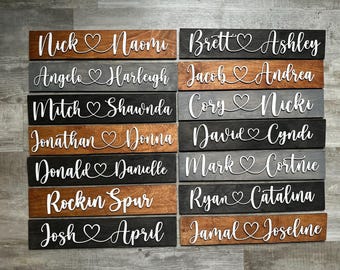 Nick ♡ Naomi
Angelo ♡ Harleigh
Mitch ♡ Shawnda
Jonathan ♡ Donna
Donald ♡ Danielle
Rockin Spur
Josh ♡ April
Brett ♡ Ashley
Jacob ♡ Andrea
Cory ♡ Nicki
David ♡ Cyndi
Mark ♡ Cortnie
Ryan ♡ Catalina
Jamal ♡ Joseline